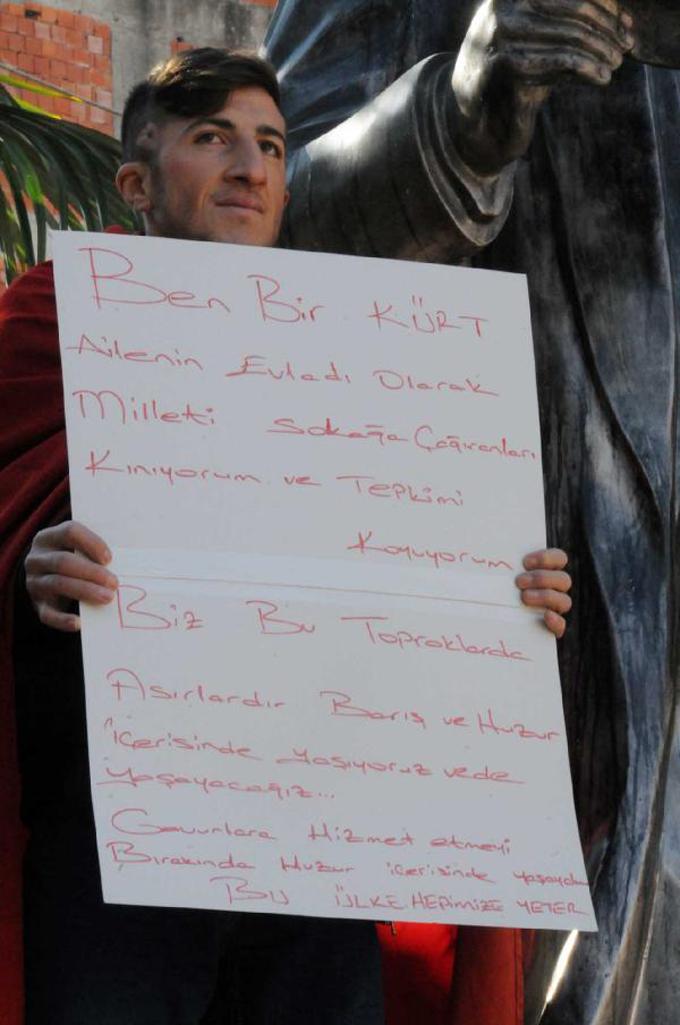 Ben Bir KÜRT
Ailenin Evladı Olarak
Milleti Sokağa Çağıranları
Kınıyorum ve Tepkimi
Koyuyorum
Biz Bu Topraklarda
Asırlardır Barış ve Huzur
içerisinde yaşıyoruz vede
yaşayacağız...
Gavurlara Hizmet etmeyi
Bırakında Huzur içerisinde yaşayalım
BU ÜLKE HEPİMİZE YETER